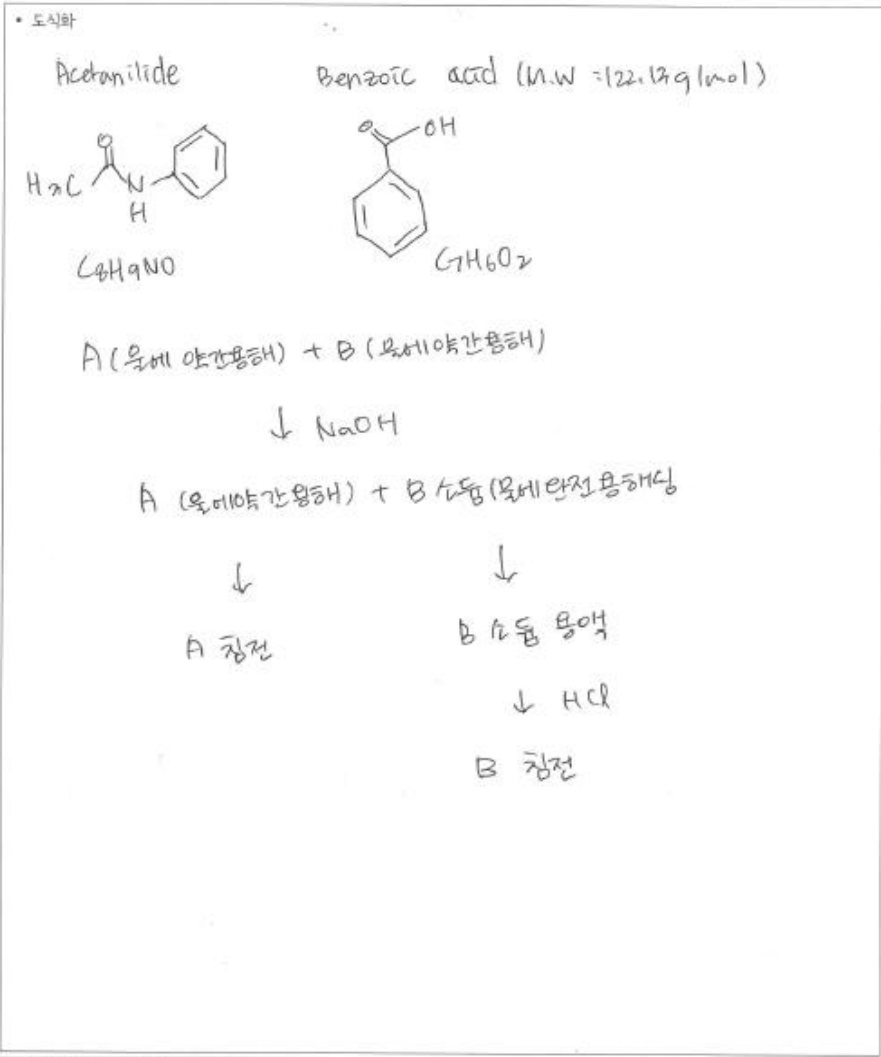 • 도식화
Acetanilide Benzoic acid (M.W =122.12g/mol)
O OH
O
H3C N
H
C8H9NO C7H6O2
A (물에 약간용해) + B (물에 약간용해)
↓ NaOH
A (물에약간용해) + B 소듐 (물에완전용해성
↓ ↓
A 침전 B 소듐 용액
↓ HCl
B 침전